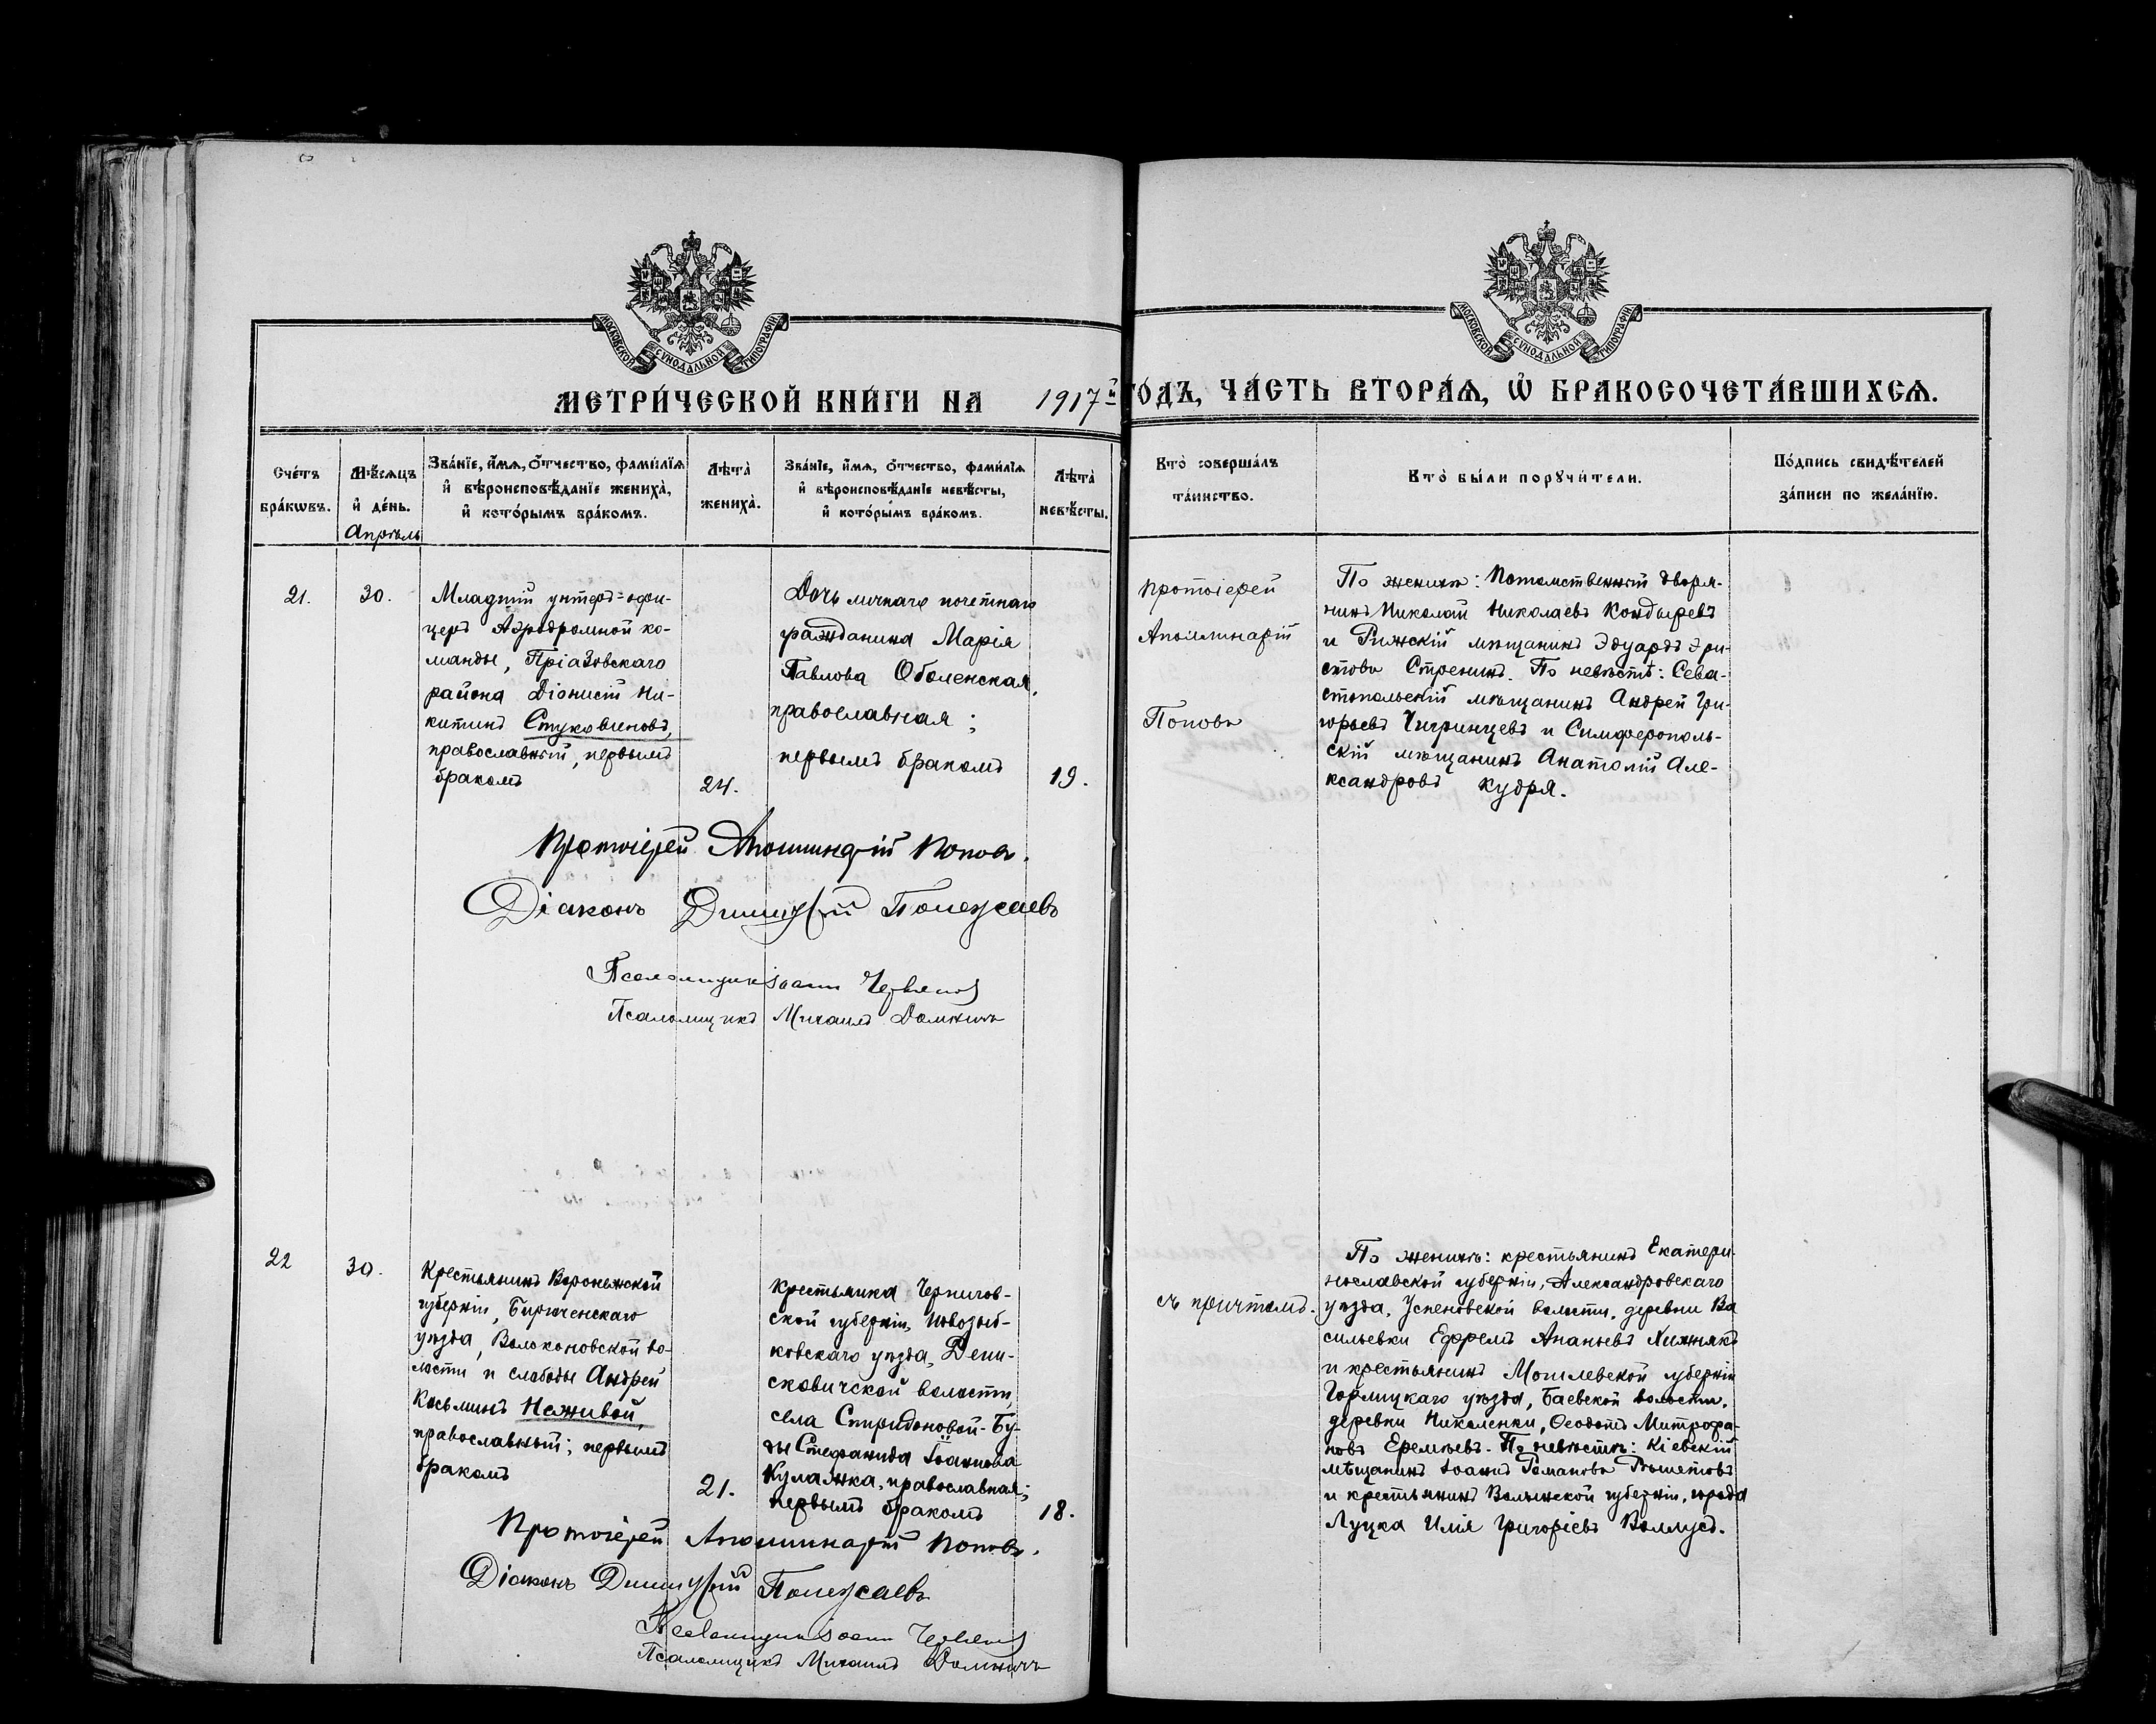 МОСКОВСКОЙ СѴНОДАЛЬНОЙ ТИПОГРАФІИ
МОСКОВСКОЙ СѴНОДАЛЬНОЙ ТИПОГРАФІИ
МЕТРИ́ЧЕСКОЙ КНИ́ГИ НА 1917й ГО́ДЪ, ЧА́СТЬ ВТОРА́Ѧ, Ѽ БРАКОСОЧЕТА́ВШИХСѦ.
Сче́тъ
бра́кѡвъ.
Мѣ́сѧцъ
и҆ де́нь.
Апрѣль
Зва́нїе, и҆́мѧ, ѻ҆́тчество, фами́лїѧ
и҆ вѣроисповѣ́данїе жениха̀,
и҆ кото́рымъ бра́комъ.
Лѣта̀
жениха̀.
Зва́нїе, и҆́мѧ, ѻ҆́тчество, фами́лїѧ
и҆ вѣроисповѣ́данїе невѣ́сты,
и҆ кото́рымъ бра́комъ.
Лѣта̀
невѣ́сты.
Кто̀ соверша́лъ
та́инство.
Кто̀ бы́ли порꙋчи́тели.
По́дпись свидѣ́телей
за́писи по жела́нїю.
21.
30.
Младшій унтеръ-офи-
церъ Аэродромной ко-
манды, Пріазовскаго
района Діонисій Ни-
китинъ Стуковиновъ,
православный, первымъ
бракомъ
24.
Дочь личнаго почетнаго
гражданина Марія
Павлова Оболенская,
православная;
первымъ бракомъ
19.
Протоіерей
Аполлинарій
Поповъ
По женихѣ: Потомственный дворя-
нинъ Николай Николаевъ Кондыревъ
и Рижскій мѣщанинъ Эдуардъ Эри-
стовъ Стренинъ. По невѣстѣ: Сева-
стопольскій мѣщанинъ Андрей Гри-
горьевъ Чигринцевъ и Симферополь-
скій мѣщанинъ Анатолій Але-
ксандровъ Кудря.
Протоіерей Аполлинарій Поповъ.
Діаконъ Димитрій Полежаевъ
Псаломщикъ Іоаннъ
Псаломщикъ Михаилъ Домничъ
22
30.
Крестьянинъ Воронежской
губерніи, Бирюченскаго
уѣзда, Волоконовской во-
лости и слободы Андрей
Косьминъ Неживой,
православный; первымъ
бракомъ
21.
крестьянка Чернигов-
ской губерніи, Новозыб-
ковскаго уѣзда, Дени-
сковичской волости,
села Спиридоновой-Бу-
ды Стефанида Іоаннова
Кулажка, православная;
первымъ бракомъ
18.
съ причтомъ.
По женихѣ: крестьянинъ Екатери-
нославской губерніи, Александровскаго
уѣзда, Успеновской волости, деревни Ва
сильевки Ефремъ Ананьевъ Хижнякъ
и крестьянинъ Могилевской губерніи
Горыцкаго уѣзда, Баевской волости,
деревни Николенки, Ѳеодотъ Митрофа-
новъ Еремѣевъ. По невѣстѣ: Кіевскій
мѣщанинъ Іоаннъ Романовъ Рѣшетовъ
и крестьянинъ Волынской губерніи, города
Луцка Илія Григоріевъ Воллусъ.
Протоіерей Аполлинарій Поповъ.
Діаконъ Димитрій Полежаевъ
Псаломщикъ Іоаннъ
Псаломщикъ Михаилъ Домничъ